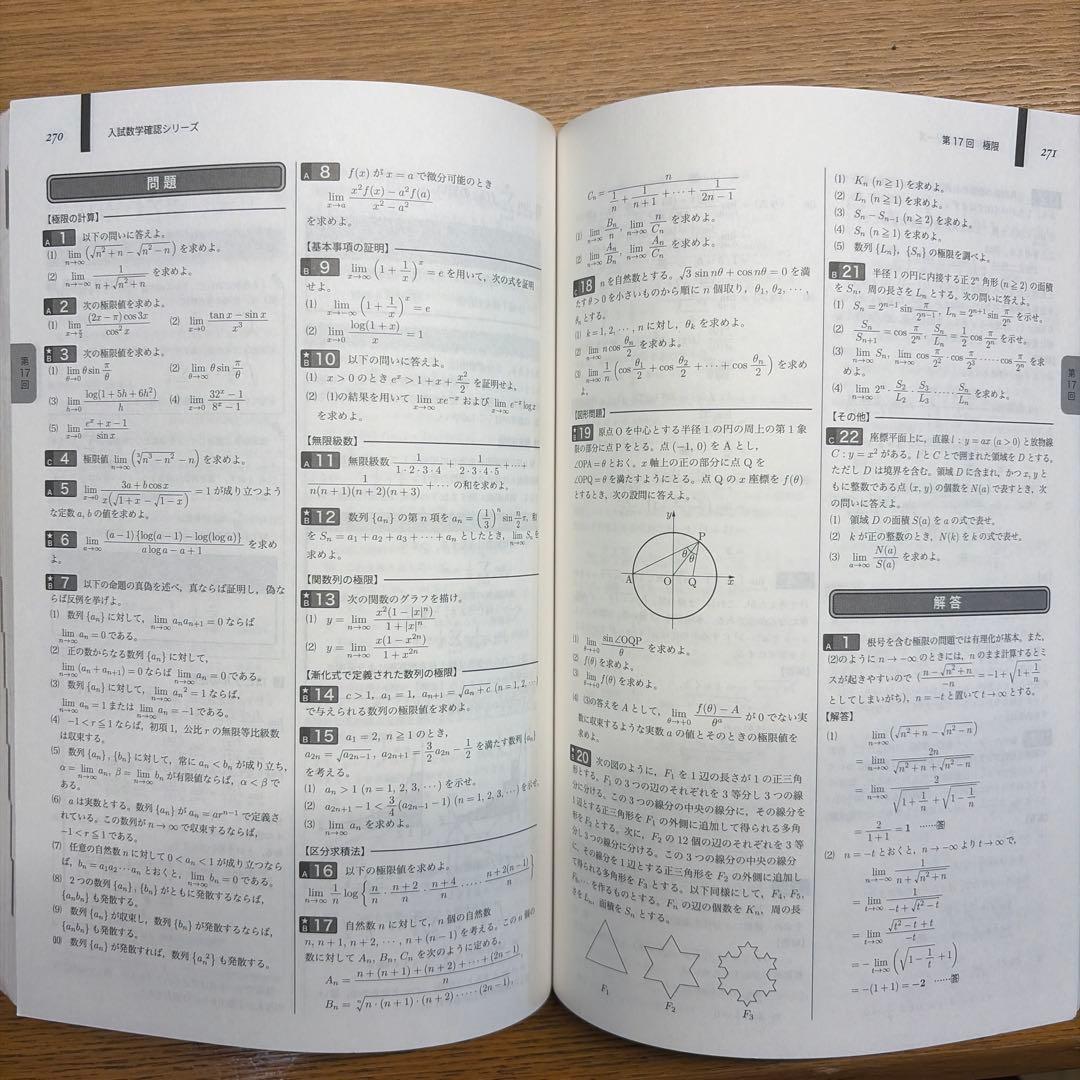 270
入試数学確認シリーズ
問題
【極限の計算】
A 1 以下の問いに答えよ。
(1) lim_{n→∞} (√(n²+n) − √(n²−n)) を求めよ。
(2) lim_{n→−∞} 1/(n+√(n²+n)) を求めよ。
A 2 次の極限値を求めよ。
(1) lim_{x→π/2} (2x−π)cos3x / cos²x (2) lim_{x→0} (tan x − sin x)/x³
★B 3 次の極限値を求めよ。
(1) lim_{θ→0} θ sin π/θ (2) lim_{θ→∞} θ sin π/θ
(3) lim_{h→0} log(1+5h+6h²)/h (4) lim_{x→0} (32ˣ−1)/(8ˣ−1)
(5) lim_{x→0} (eˣ+x−1)/sin x
C 4 極限値 lim_{n→∞} (∛(n³−n²) − n) を求めよ。
A 5 lim_{x→0} (3a+b cos x)/(x(√(1+x)−√(1−x))) = 1 が成り立つよう
な定数 a, b の値を求めよ。
★B 6 lim_{a→∞} (a−1){log(a−1)−log(log a)}/(a log a − a + 1) を求め
よ。
★B 7 以下の命題の真偽を述べ，真ならば証明し，偽な
らば反例を挙げよ。
(1) 数列 {aₙ} に対して，lim_{n→∞} aₙaₙ₊₁ = 0 ならば
lim_{n→∞} aₙ = 0 である。
(2) 正の数からなる数列 {aₙ} に対して，
lim_{n→∞} (aₙ+aₙ₊₁) = 0 ならば lim_{n→∞} aₙ = 0 である。
(3) 数列 {aₙ} に対して，lim_{n→∞} aₙ² = 1 ならば，
lim_{n→∞} aₙ = 1 または lim_{n→∞} aₙ = −1 である。
(4) −1 < r ≦ 1 ならば，初項 1, 公比 r の無限等比級数
は収束する。
(5) 数列 {aₙ}, {bₙ} に対して，常に aₙ < bₙ が成り立ち，
α = lim_{n→∞} aₙ, β = lim_{n→∞} bₙ が有限値ならば，α < β で
ある。
(6) a は実数とする。数列 {aₙ} が aₙ = arⁿ⁻¹ で定義さ
れている。この数列が n → ∞ で収束するならば，
−1 < r ≦ 1 である。
(7) 任意の自然数 n に対して 0 < aₙ < 1 が成り立つなら
ば，bₙ = a₁a₂···aₙ とおくと，lim_{n→∞} bₙ = 0 である。
(8) 2つの数列 {aₙ}, {bₙ} がともに発散するならば，
{aₙbₙ} も発散する。
(9) 数列 {aₙ} が収束し，数列 {bₙ} が発散するならば，
{aₙbₙ} も発散する。
(10) 数列 {aₙ} が発散すれば，数列 {aₙ²} も発散する。
第17回
A 8 f(x) が x = a で微分可能のとき
lim_{x→a} (x²f(x) − a²f(a))/(x² − a²)
を求めよ。
【基本事項の証明】
B 9 lim_{x→∞} (1+1/x)ˣ = e を用いて，次の式を証明
せよ。
(1) lim_{x→−∞} (1+1/x)ˣ = e
(2) lim_{x→0} log(1+x)/x = 1
★B 10 以下の問いに答えよ。
(1) x > 0 のとき eˣ > 1+x+x²/2 を証明せよ，
(2) (1)の結果を用いて lim_{x→∞} xe⁻ˣ および lim e⁻ˣ log x
を求めよ。
【無限級数】
A 11 無限級数 1/(1·2·3·4) + 1/(2·3·4·5) + ···+
1/(n(n+1)(n+2)(n+3)) + ··· の和を求めよ。
★B 12 数列 {aₙ} の第 n 項を aₙ = (1/3)ⁿ sin n/2 π, 和
を Sₙ = a₁+a₂+a₃+···+aₙ としたとき，lim_{n→∞} Sₙ を
求めよ。
【関数列の極限】
★B 13 次の関数のグラフを描け。
(1) y = lim_{n→∞} x²(1−|x|ⁿ)/(1+|x|ⁿ)
(2) y = lim_{n→∞} x(1−x²ⁿ)/(1+x²ⁿ)
【漸化式で定義された数列の極限】
★B 14 c > 1, a₁ = 1, aₙ₊₁ = √(aₙ+c) (n = 1, 2, ···)
で与えられる数列の極限値を求めよ。
B 15 a₁ = 2, n ≧ 1 のとき，
a₂ₙ = √a₂ₙ₋₁, a₂ₙ₊₁ = 3/2 a₂ₙ − 1/2 を満たす数列 {aₙ}
を考える。
(1) aₙ > 1 (n = 1, 2, 3, ···) を示せ。
(2) a₂ₙ₊₁−1 < 3/4 (a₂ₙ₋₁−1) (n = 1, 2, 3, ···) を示せ。
(3) lim_{n→∞} aₙ を求めよ。
【区分求積法】
A 16 以下の極限値を求めよ。
lim_{n→∞} 1/n log{n/n · (n+2)/n · (n+4)/n ····· (n+2(n−1))/n}
★B 17 自然数 n に対して，n 個の自然数
n, n+1, n+2, ···, n+(n−1) を考える。この n 個の
数に対して Aₙ, Bₙ, Cₙ を次のように定める。
Aₙ = (n+(n+1)+(n+2)+···+(2n−1))/n
Bₙ = ⁿ√(n·(n+1)·(n+2)·····(2n−1)),
第17回 極限
271
Cₙ = n/(1/n + 1/(n+1) + ··· + 1/(2n−1))
(1) lim_{n→∞} Bₙ/n, lim_{n→∞} n/Cₙ を求めよ。
(2) lim_{n→∞} Aₙ/Bₙ, lim_{n→∞} Aₙ/Cₙ を求めよ。
C 18 n を自然数とする。√3 sin nθ + cos nθ = 0 を満
たす θ > 0 を小さいものから順に n 個取り，θ₁, θ₂, ···,
θₙ とする。
(1) k = 1, 2, ···, n に対し，θₖ を求めよ。
(2) lim_{n→∞} n cos θₙ/2 を求めよ。
(3) lim_{n→∞} 1/n (cos θ₁/2 + cos θ₂/2 + ··· + cos θₙ/2) を求め
よ。
【図形問題】
★B 19 原点 O を中心とする半径 1 の円の周上の第 1 象
限の部分に点 P をとる。点 (−1, 0) を A とし，
∠OPA = θ とおく。x 軸上の正の部分に点 Q を
∠OPQ = θ を満たすようにとる。点 Q の x 座標を f(θ)
とするとき，次の設問に答えよ。
y
P
θ θ
A O Q x
(1) lim_{θ→+0} sin∠OQP/θ を求めよ。
(2) f(θ) を求めよ。
(3) lim_{θ→+0} f(θ) を求めよ。
(4) (3)の答えを A として，lim_{θ→+0} (f(θ)−A)/θᵃ が 0 でない実
数に収束するような実数 a の値とそのときの極限値を
求めよ。
20 次の図のように，F₁ を 1 辺の長さが 1 の正三角
形とする，F₁ の 3 つの辺のそれぞれを 3 等分し 3 つの線
分に分ける。この 3 つの線分の中央の線分に，その線分を
1 辺とする正三角形を F₁ の外側に追加して得られる多角
形を F₂ とする。次に，F₂ の 12 個の辺のそれぞれを 3 等
分し 3 つの線分に分ける。この 3 つの線分の中央の線分
に，その線分を 1 辺とする正三角形を F₂ の外側に追加し
て得られる多角形を F₃ とする。以下同様にして，F₄, F₅,
F₆, ··· を作るものとする。Fₙ の辺の個数を Kₙ, 周の長
さを Lₙ, 面積を Sₙ とする。
F₁ F₂ F₃
(1) Kₙ (n ≧ 1) を求めよ。
(2) Lₙ (n ≧ 1) を求めよ。
(3) Sₙ − Sₙ₋₁ (n ≧ 2) を求めよ。
(4) Sₙ (n ≧ 1) を求めよ。
(5) 数列 {Lₙ}, {Sₙ} の極限を調べよ。
B 21 半径 1 の円に内接する正 2ⁿ 角形 (n ≧ 2) の面積
を Sₙ, 周の長さを Lₙ とする。次の問いに答えよ。
(1) Sₙ = 2ⁿ⁻¹ sin π/2ⁿ⁻¹, Lₙ = 2ⁿ⁺¹ sin π/2ⁿ を示せ。
(2) Sₙ/Sₙ₊₁ = cos π/2ⁿ, Sₙ/Lₙ = 1/2 cos π/2ⁿ を示せ。
(3) lim_{n→∞} Sₙ, lim_{n→∞} cos π/2² · cos π/2³ ····· cos π/2ⁿ を求
めよ。
(4) lim_{n→∞} 2ⁿ · S₂/L₂ · S₃/L₃ ····· Sₙ/Lₙ を求めよ。
【その他】
C 22 座標平面上に，直線 l : y = ax (a > 0) と放物線
C : y = x² がある。l と C とで囲まれた領域を D とする。
ただし D は境界を含む。領域 D に含まれ，かつ x, y と
もに整数である点 (x, y) の個数を N(a) で表すとき，次
の問いに答えよ。
(1) 領域 D の面積 S(a) を a の式で表せ。
(2) k が正の整数のとき，N(k) を k の式で表せ。
(3) lim_{a→∞} N(a)/S(a) を求めよ。
解答
A 1 根号を含む極限の問題では有理化が基本，また，
(2)のように n → −∞ のときには，n のまま計算するとミ
スが起きやすいので ( (n−√(n²+n))/−n = −1+√(1+1/n)
としてしまいがち)，n = −t と置いて t → ∞ とする。
【解答】
(1) lim_{n→∞} (√(n²+n) − √(n²−n))
= lim_{n→∞} 2n/(√(n²+n) + √(n²−n))
= lim_{n→∞} 2/(√(1+1/n) + √(1−1/n))
= 2/(1+1) = 1 ……答
(2) n = −t とおくと，n → −∞ より t → ∞ で，
lim_{n→−∞} 1/(n+√(n²+n))
= lim_{t→∞} 1/(−t+√(t²−t))
= lim_{t→∞} (√(t²−t)+t)/−t
= −lim_{t→∞} (√(1−1/t)+1)
= −(1+1) = −2 ……答
第17回